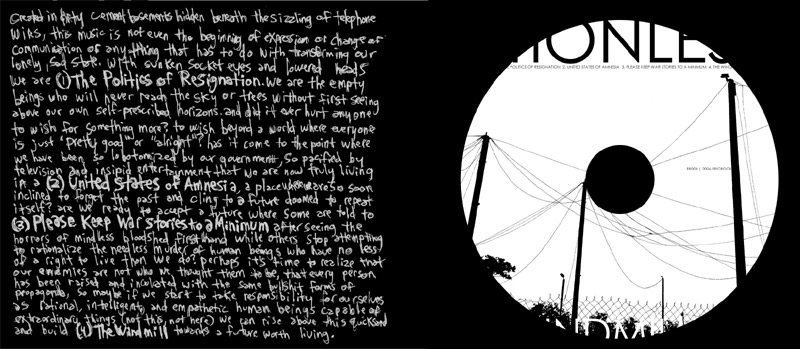 Created in dirty cement basements hidden beneath the sizzling of telephone
wires, this music is not even the beginning of expression or change or
communication or anything that has to do with transforming our
lonely, sad state. With sunken socket eyes and lowered heads
we are (1) The Politics of Resignation. We are the empty
beings who will never reach the sky or trees without first seeing
above our own self-prescribed horizons. and did it ever hurt anyone
to wish for something more? to wish beyond a world where everyone
is just "pretty good" or "alright"? has it come to the point where
we have been so lobotomized by our government, so pacified by
television and insipid entertainment that we are now truly living
in a (2) United States of Amnesia, a place where we are so soon
inclined to forget the past and cling to a future doomed to repeat
itself? are we ready to accept a future where some are told to
(3) Please Keep War Stories to a Minimum after seeing the
horrors of mindless bloodshed firsthand while others stop attempting
to rationalize the needless murder of human beings who have no less
of a right to live than we do? perhaps it's time to realize that
our enemies are not who we thought them to be, that every person
has been raised and inculated with the same bullshit forms of
propaganda, so maybe if we start to take responsibility for ourselves
as rational, intelligent, and empathetic human beings capable of
extraordinary things (not this, not here) we can rise above this quicksand
and build (4) The Windmill towards a future worth living.
IONLES
POLITICS OF RESIGNATION 2. UNITED STATES OF AMNESIA 3. PLEASE KEEP WAR STORIES TO A MINIMUM 4. THE WIND
NDMI